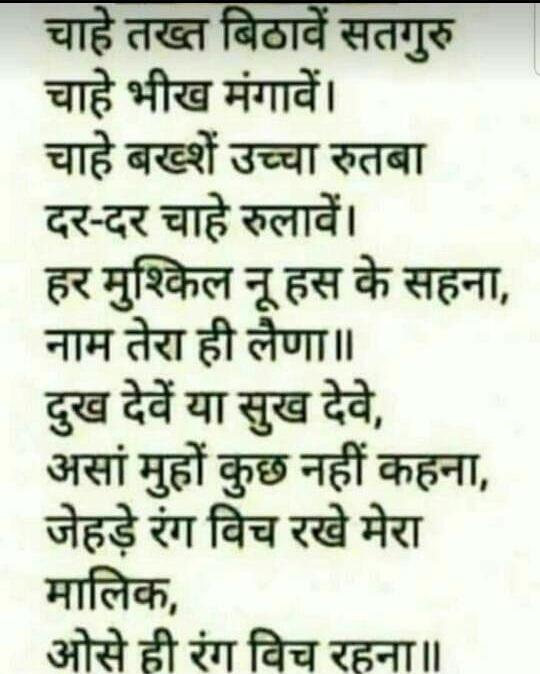 चाहे तख्त बिठावें सतगुरु
चाहे भीख मंगावें।
चाहे बख्शें उच्चा रुतबा
दर-दर चाहे रुलावें।
हर मुश्किल नू हस के सहना,
नाम तेरा ही लैणा॥
दुख देवें या सुख देवे,
असां मुहों कुछ नहीं कहना,
जेहड़े रंग विच रखे मेरा
मालिक,
ओसे ही रंग विच रहना॥